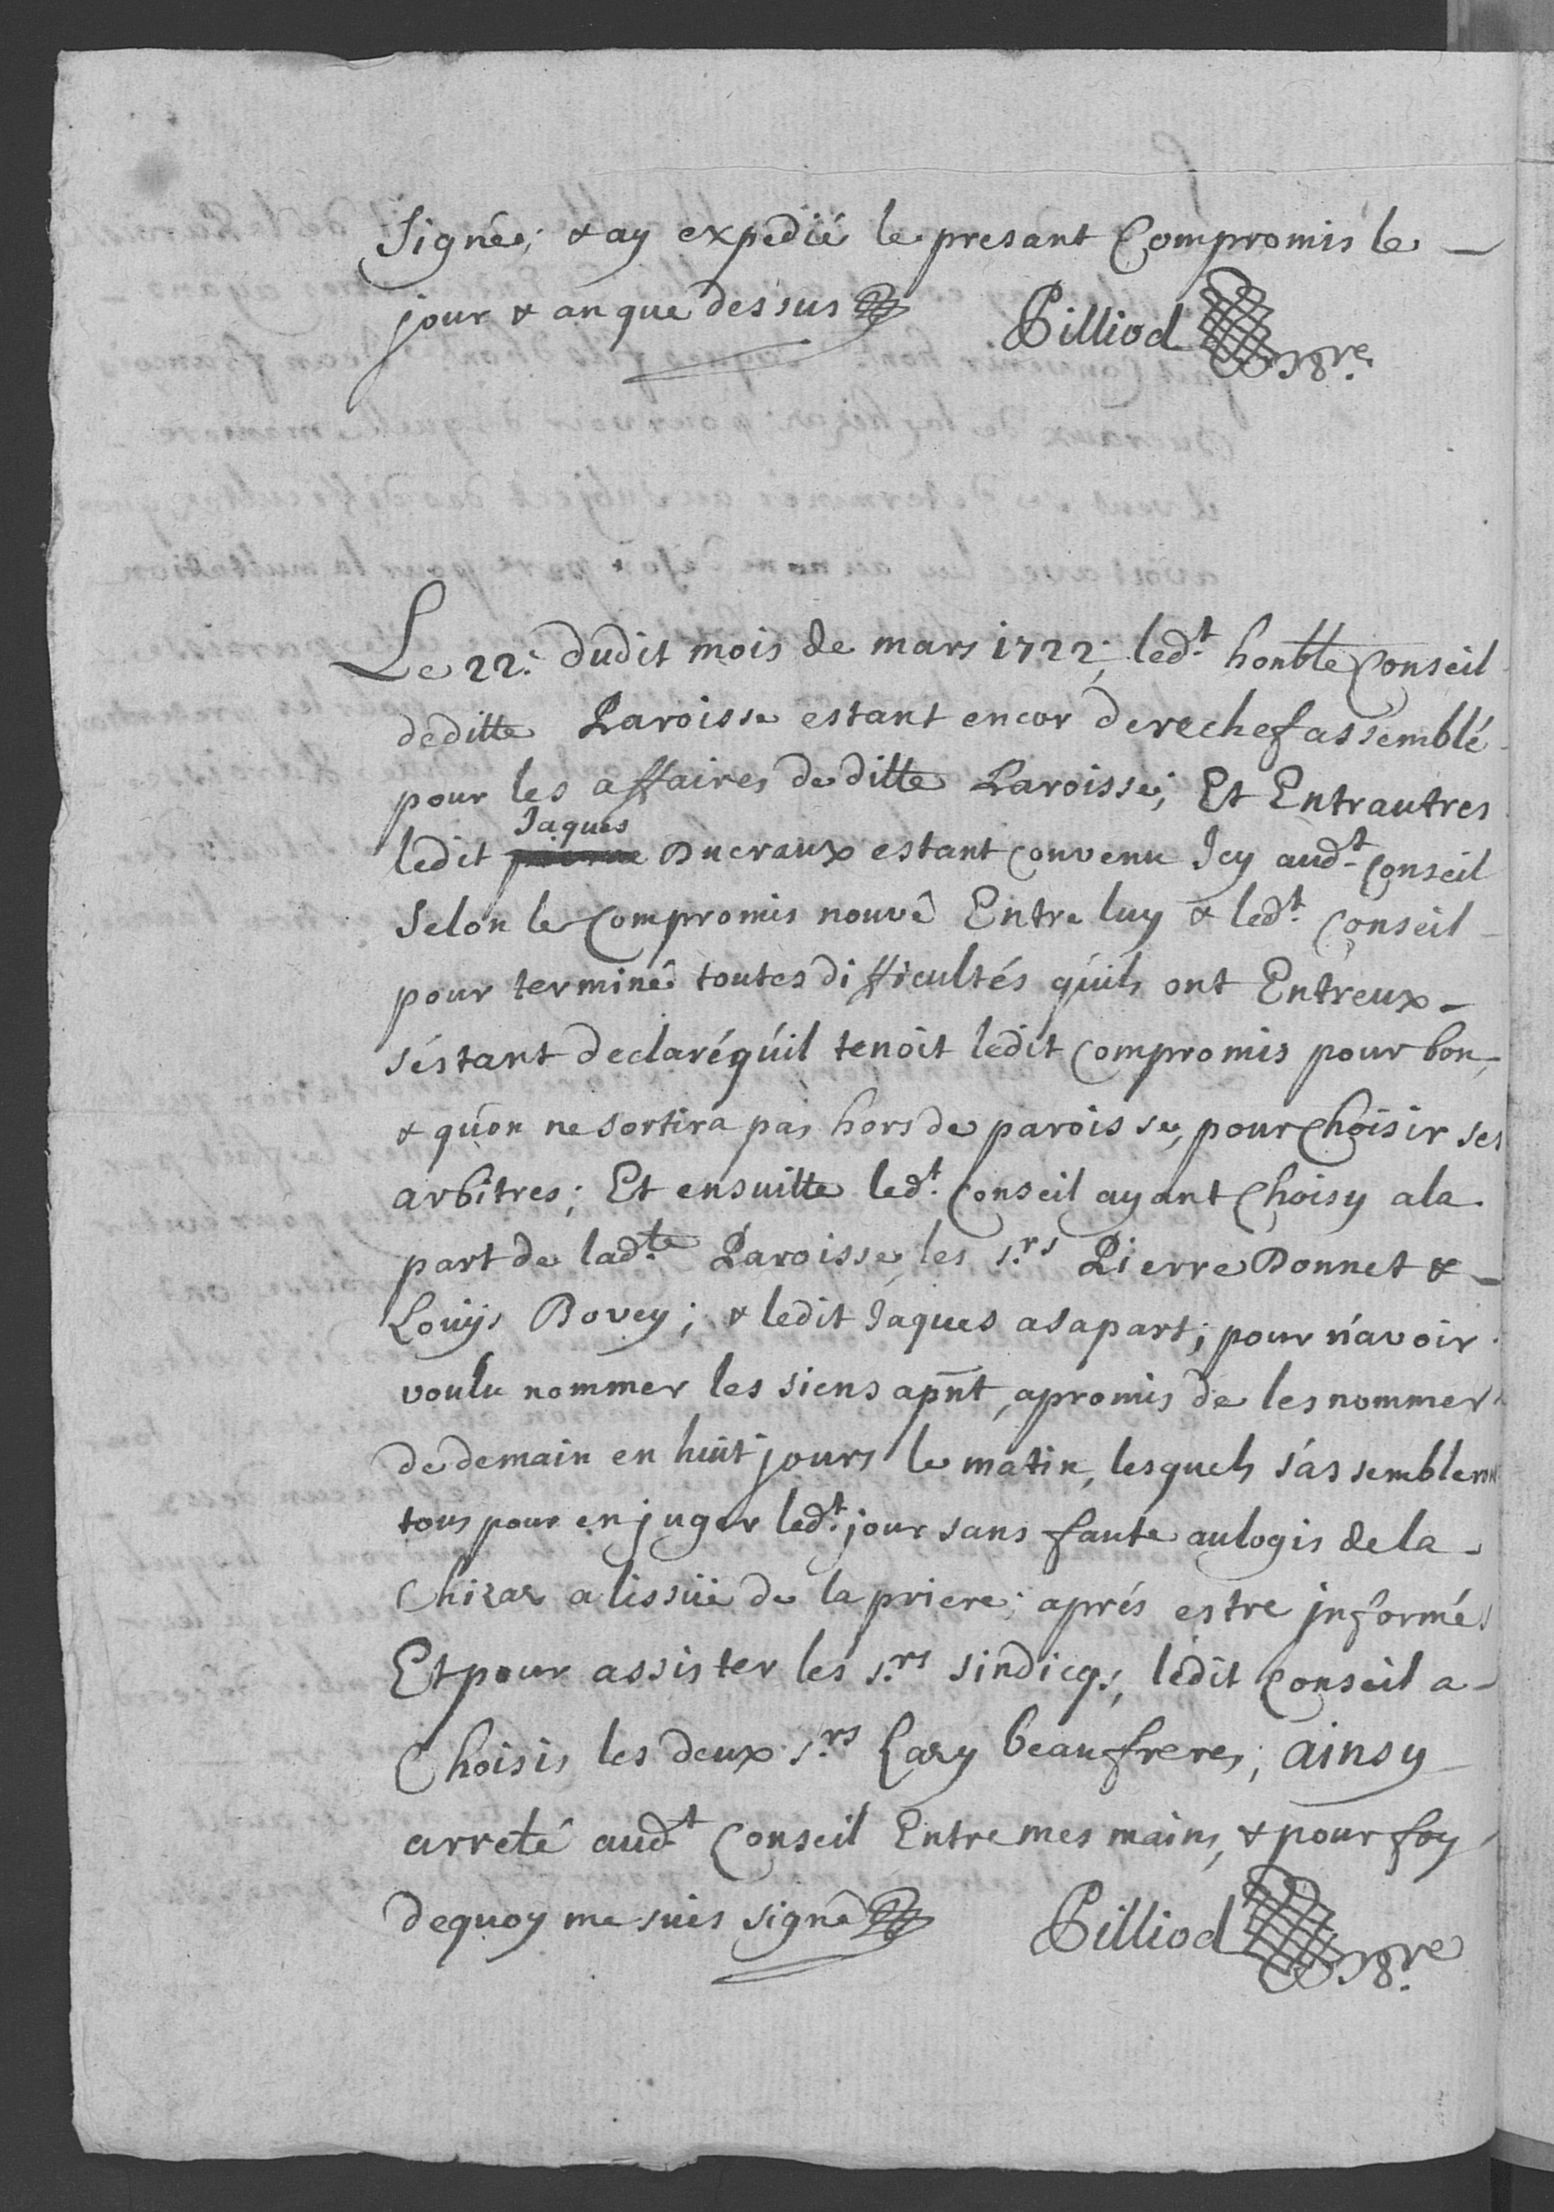 Signé; & ay expedié le presant Compromis le
jour & an que dessus Pilliod
Le 22.e dudit mois de mars 1722; led.t honble Conseil
deditte Paroisse estant encor derechef assemblé
pour les affaires de ditte Paroisse; Et Entrautres
Jaques
ledit Ducraux estant convenu Icy aud.t Conseil
Selon le Compromis nouvé Entre luy & led.t Conseil
pour terminé toutes difficultés qu'ils ont Entreux
s'éstant declaré qu'il tenoit ledit Compromis pour bon,
& qu'on ne sortira pas hors de paroisse, pour Choisir ses
arbitres; Et ensuitte led.t Conseil ayant Choisy a la
part de lad.te Paroisse, les s.rs Pierre Donnet &
Louÿs Bovey; & ledit Jaques a sa part; pour n'avoir
voulu nommer les siens apñt, a promis de les nommer
de demain en huit jours le matin, lesquels s'assembleront
tous pour en juger led.t jour sans faute au logis de la
Chizaz a lissüe de la priere; aprés estre jnformés
Et pour assister les s.rs sindicqs, ledit Conseil a
Choisis les deux s.rs Cazy beaufreres; ainsy
arreté aud.t Conseil Entre mes mains, & pour foy
dequoy me suis signé Pilliod